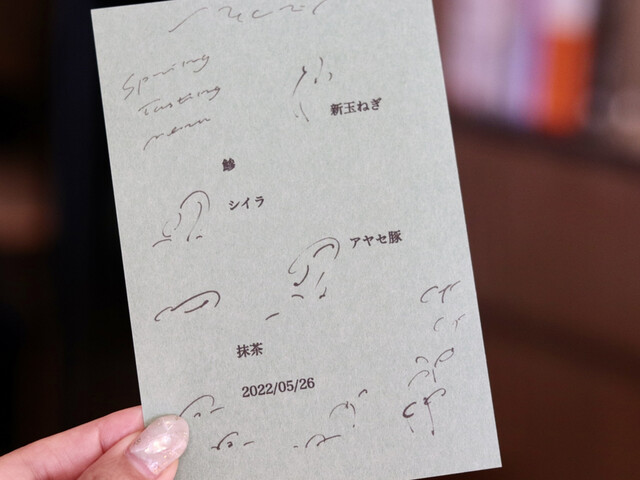 Spring
Tasting
menu
新玉ねぎ
鯵
シイラ
アヤセ豚
抹茶
2022/05/26